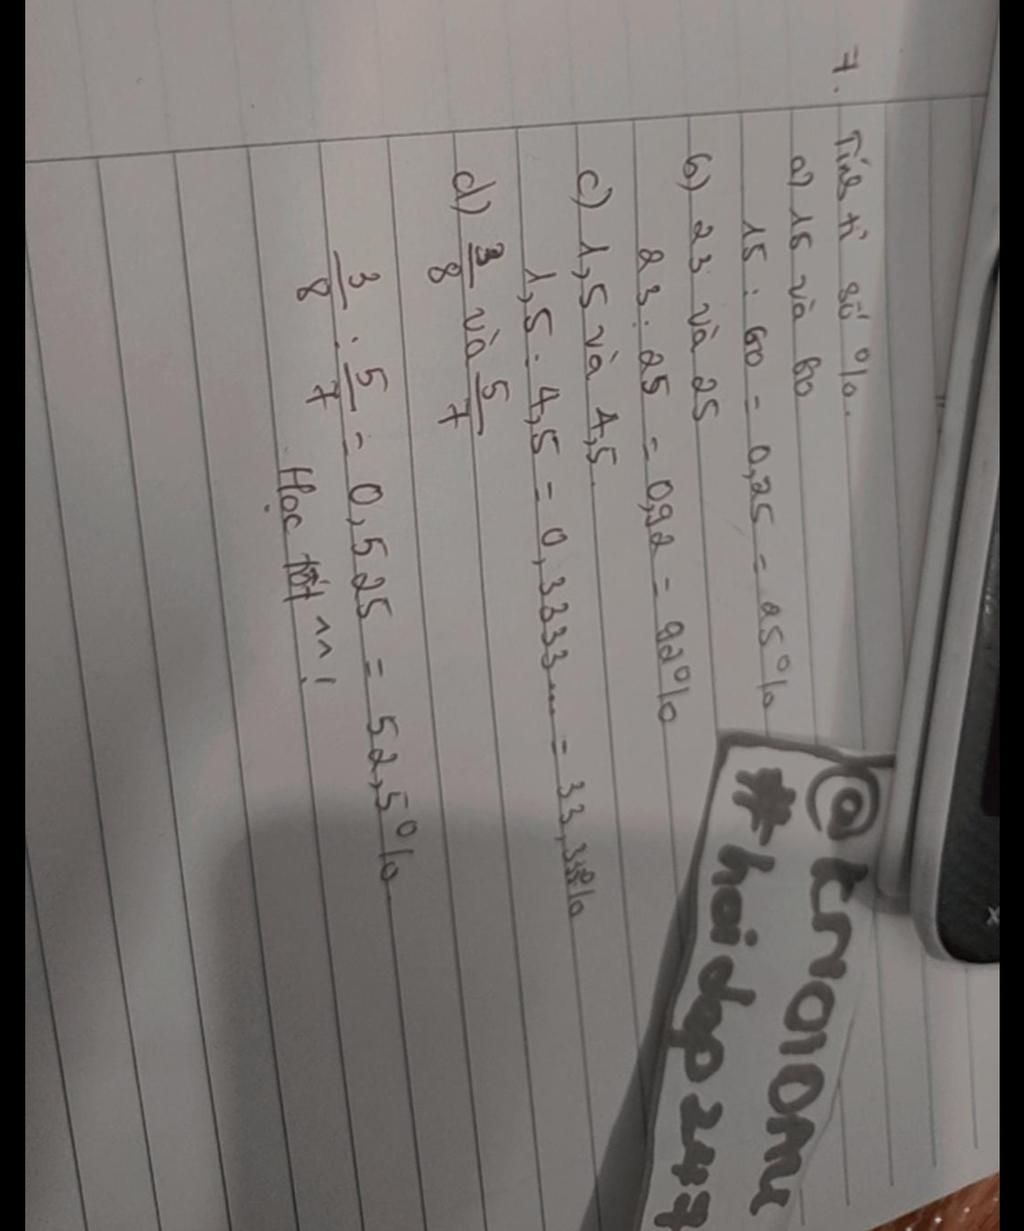 7. Tính tỉ số %.
a) 15 và 60
15 : 60 = 0,25 = 25%
b) 23 và 25
23 : 25 = 0,92 = 92%
c) 1,5 và 4,5
1,5 : 4,5 = 0,3333... = 33,33%
d) 3/8 và 5/7
3/8 : 5/7 = 0,525 = 52,5%
Học tốt ^^!
#hoidap247